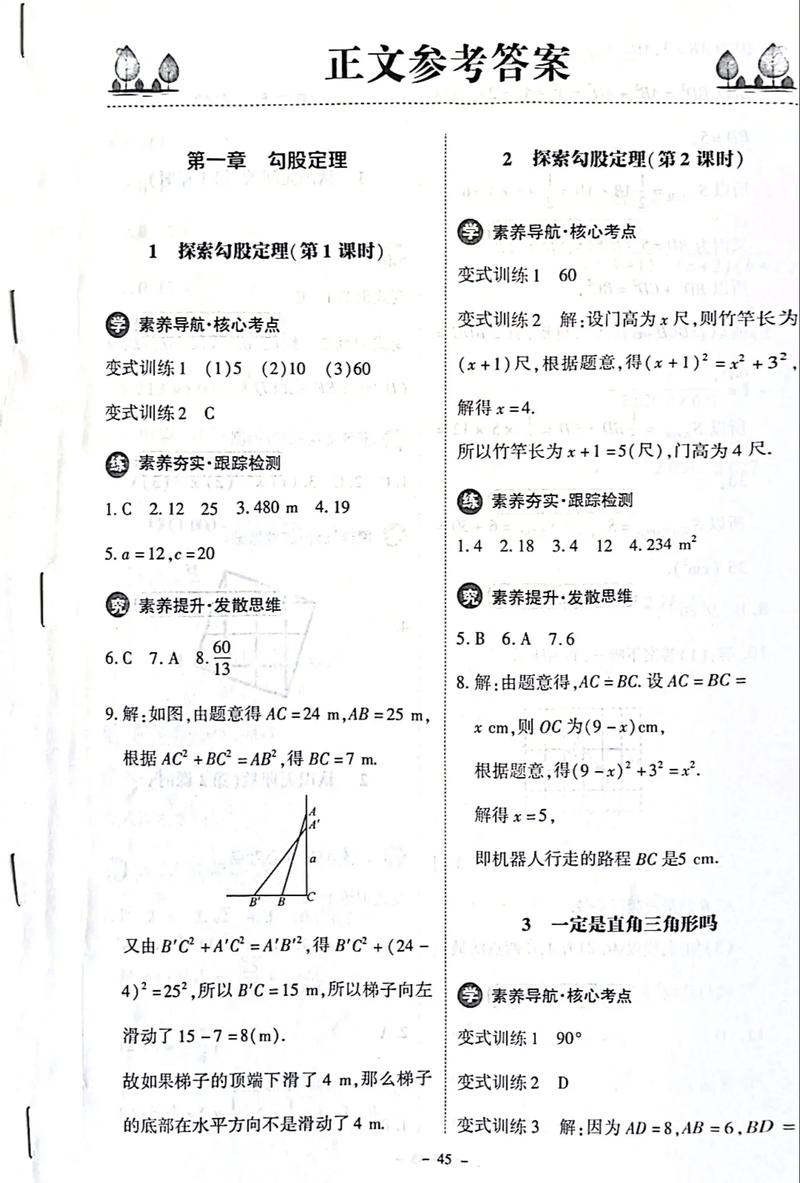 正文参考答案
第一章 勾股定理
1 探索勾股定理(第1课时)
学 素养导航·核心考点
变式训练1 (1)5 (2)10 (3)60
变式训练2 C
练 素养夯实·跟踪检测
1.C 2.12 25 3.480 m 4.19
5.a=12,c=20
究 素养提升·发散思维
6.C 7.A 8.60/13
9.解:如图,由题意得AC=24 m,AB=25 m,
根据AC²+BC²=AB²,得BC=7 m.
A
A′
a
B′ B C
又由B′C²+A′C²=A′B′²,得B′C²+(24-
4)²=25²,所以B′C=15 m,所以梯子向左
滑动了15-7=8(m).
故如果梯子的顶端下滑了4 m,那么梯子
的底部在水平方向不是滑动了4 m.
2 探索勾股定理(第2课时)
学 素养导航·核心考点
变式训练1 60
变式训练2 解:设门高为x尺,则竹竿长为
(x+1)尺,根据题意,得(x+1)²=x²+3²,
解得x=4.
所以竹竿长为x+1=5(尺),门高为4尺.
练 素养夯实·跟踪检测
1.4 2.18 3.4 12 4.234 m²
究 素养提升·发散思维
5.B 6.A 7.6
8.解:由题意得,AC=BC.设AC=BC=
x cm,则OC为(9-x)cm,
根据题意,得(9-x)²+3²=x².
解得x=5,
即机器人行走的路程BC是5 cm.
3 一定是直角三角形吗
学 素养导航·核心考点
变式训练1 90°
变式训练2 D
变式训练3 解:因为AD=8,AB=6,BD=
- 45 -